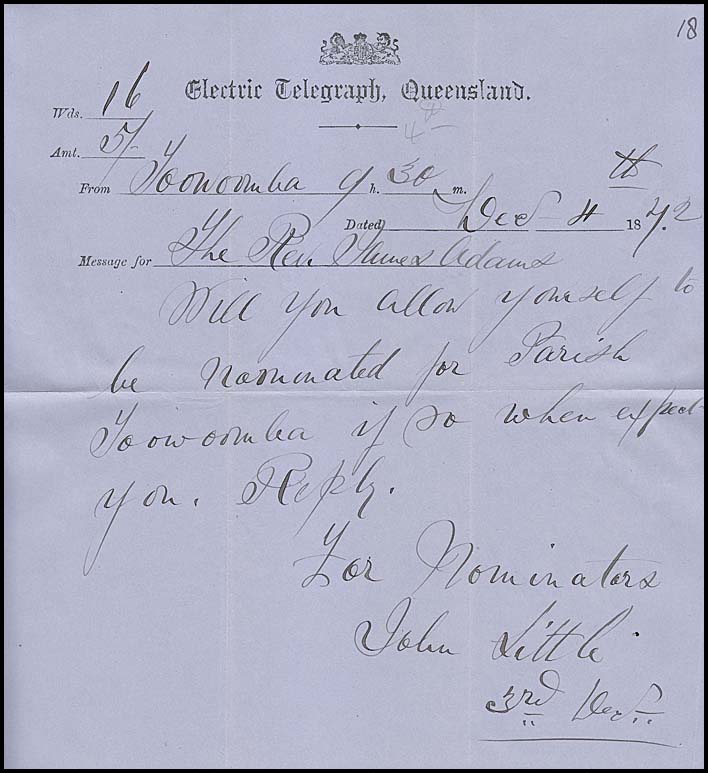 18
Electric Telegraph, Queensland.
Wds. 16
4th
Amt. 5/-
From Toowoomba 9 h. 30 m.
Dated Decr 4th 1872
Message for The Rev. James Adams
Will you allow yourself to
be nominated for Parish
Toowoomba if so when expect
you. Reply.
For Nominators
John Little
3rd Decr